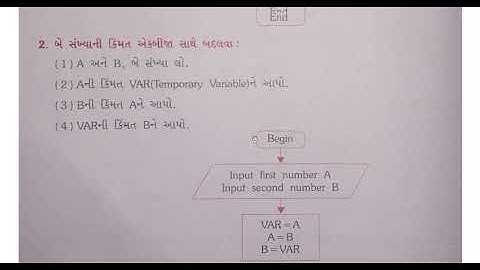 End
2. બે સંખ્યાની કિંમત એકબીજા સાથે બદલવા :
(1) A અને B, બે સંખ્યા લો.
(2) Aની કિંમત VAR(Temporary Variable)ને આપો.
(3) Bની કિંમત Aને આપો.
(4) VARની કિંમત Bને આપો.
Begin
Input first number A
Input second number B
VAR = A
A = B
B = VAR